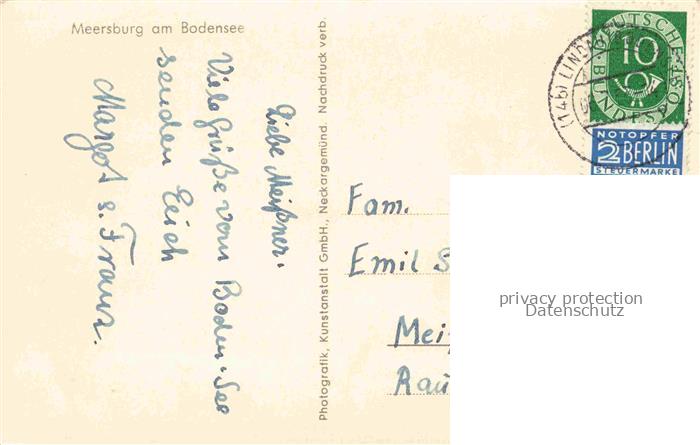 Meersburg am Bodensee
Liebe Meißner.
Viele Grüße vom Boden-See
senden Euch
Margot u. Franz.
Photografik, Kunstanstalt GmbH., Neckargemünd. Nachdruck verb.
DEUTSCHE
BUNDESPOST
10
(14b) LINDAU
NOTOPFER
2 BERLIN
STEUERMARKE
Fam.
Emil S
Mei
Rau
privacy protection
Datenschutz